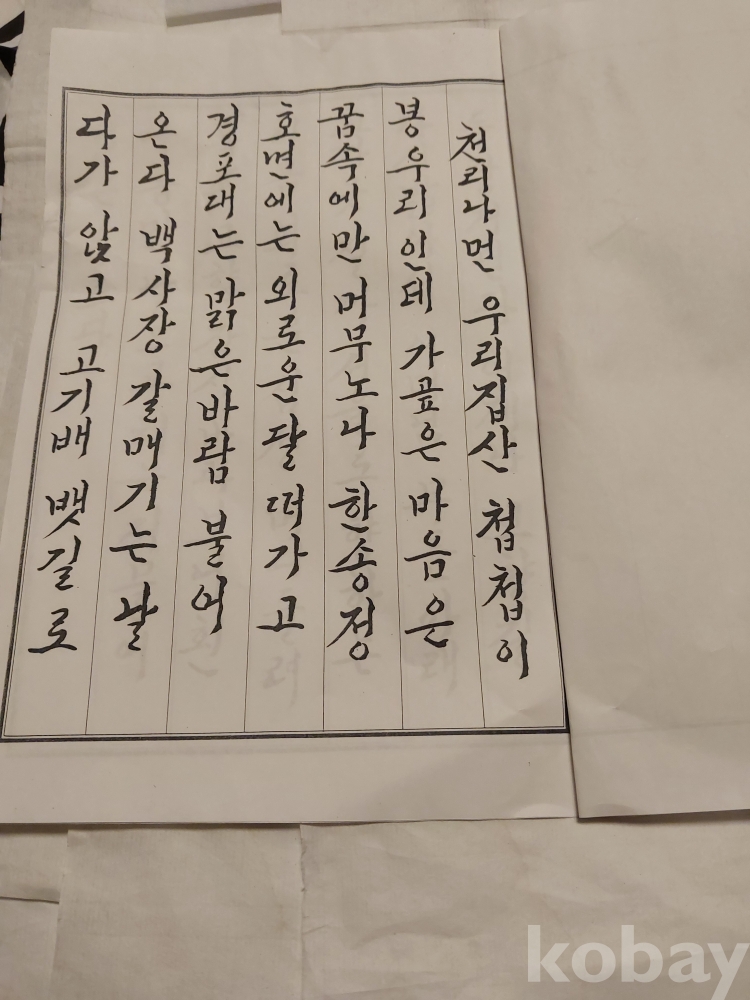 천리나먼 우리집산 첩첩이
봉우리 인데 가곺은 마음은
꿈속에만 머무노나 한송정
호면에는 외로운달 떠가고
경포대는 맑은바람 불어
온다 백사장 갈매기는 날
다가 앉고 고기배 뱃길로
kobay